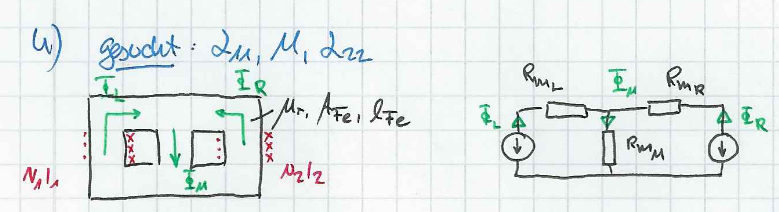 4) gesucht: L₁₁, M, L₂₂
Φ_L Φ_R
μr, A_Fe, l_Fe
N₁I₁ Φ_M N₂I₂
R_mL Φ_M R_mR
Φ_L Φ_R
R_mM